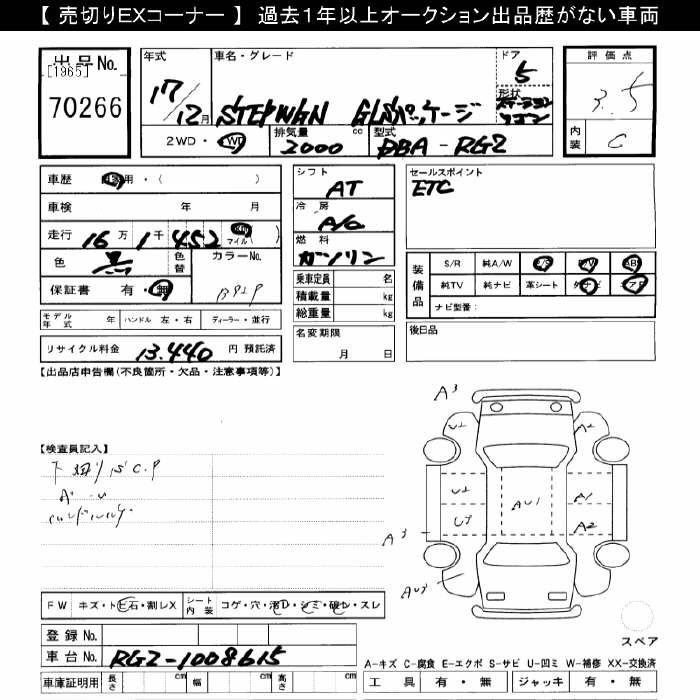 【 売切りEXコーナー 】 過去1年以上オークション出品歴がない車両
出品No.
[1965]
70266
年式
17/12月
車名・グレード
STEPWGN GLSパッケージ
ドア
5
形状
ステーションワゴン
評価点
3.5
内装
C
2WD・4WD
排気量
2000 cc
型式
DBA-RG2
車歴
自家用・( )
車検 年 月
走行 16万1千452 マイル( )
色 黒
色替
カラーNo.
B92P
保証書 有・無
シフト
AT
冷房
A/C
燃料
ガソリン
乗車定員 名
積載量 kg
総重量 kg
セールスポイント
ETC
装備品
S/R 純A/W P/S P/W ABS
純TV 純ナビ 革シート 外ナビ エアB
ナビ型番:
モデル年式 年
ハンドル 左・右
ディーラー・並行
名変期限
月 日
後日品
リサイクル料金 13.440 円 預託済
【出品店申告欄(不良箇所・欠品・注意事項等)】
【検査員記入】
下廻りサビC.P
A・U
A3
U2
A2
U2
U3
AU1
A1
A2
A3
AU3
FW キズ・ト石・割レX
シート内装 コゲ・穴・汚レ・シミ・破レ・スレ
登録No.
車台No. RG2-1008615
車庫証明用 長さ cm 幅 cm 高さ cm
スペア
A-キズ C-腐食 E-エクボ S-サビ U-凹ミ W-補修 XX-交換済
工具 有・無 ジャッキ 有・無